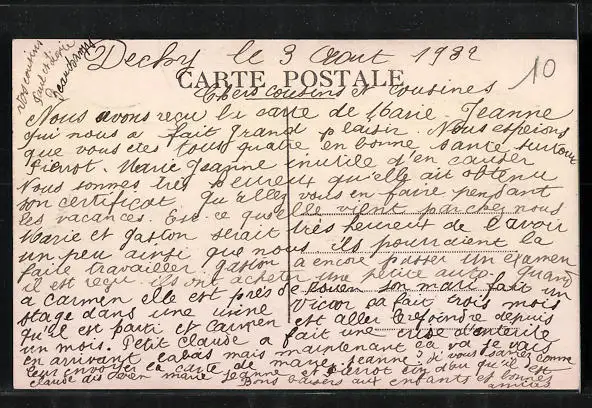 Vos cousins
Paul et Désirée
Beauchamps
Dechy le 3 Aout 1932
10
CARTE POSTALE
Chers cousins et cousines
Nous avons reçu la carte de Marie Jeanne
qui nous a fait grand plaisir. Nous espérons
que vous etes tous quatre en bonne santé surtout
Pierrot. Marie Jeanne inutile d'en causer
Nous sommes très heureux qu'elle ait obtenu
son certificat Qu'elles vous en faire pendant
les vacances. Est ce qu'elle vient par chez nous
Marie et Gaston serait très heureux de l'avoir
un peu ainsi que nous ils pourraient la
faire travailler. Gaston a encore passer un examen
il est reçu. ils ont acheter une petite auto. Quand
a Carmen elle est près de Rouen son mari fait un
stage dans une usine Victor ça fait trois mois
qu'il est parti et Carmen est aller le rejoindre depuis
un mois. Petit Claude a fait une crise d'entérite
en arrivant labas mais maintenant ça va je vais
leur envoyer la carte de marie jeanne. Si vous savez comme
Claude dis bien marie jeanne et pierrot qu'il est
Bons baisers aux enfants et bonnes
amitiés